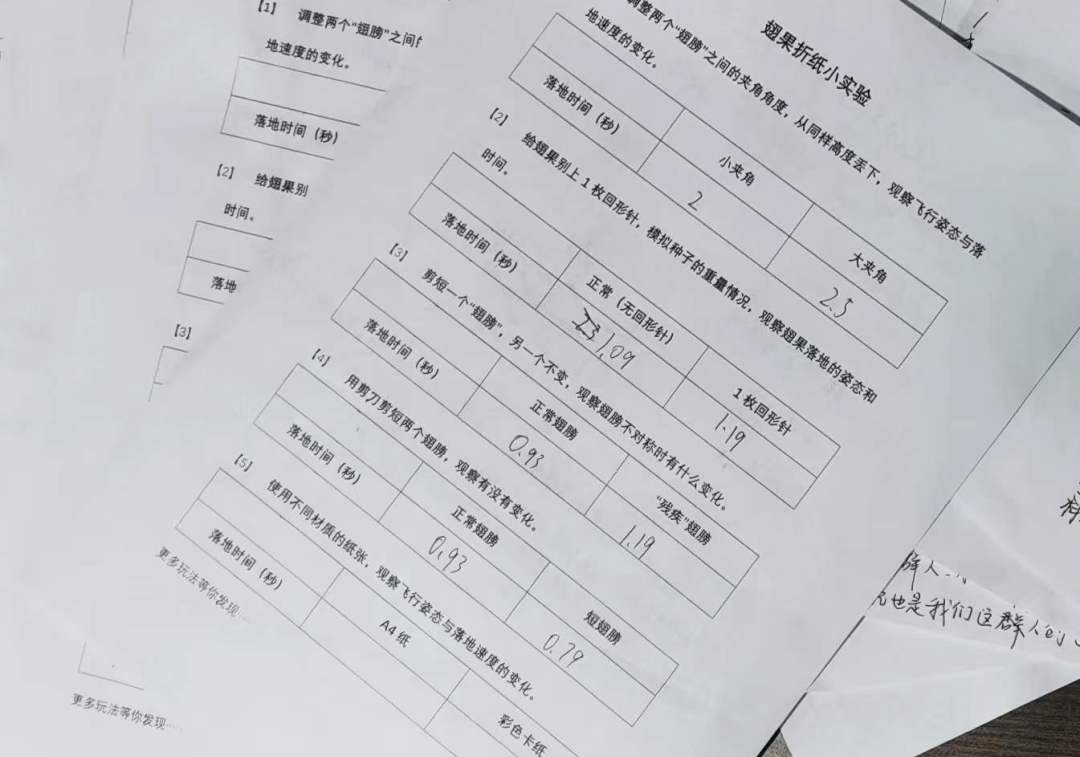 翅果折纸小实验
调整两个“翅膀”之间的夹角角度，从同样高度丢下，观察飞行姿态与落
地速度的变化。
小夹角 大夹角
落地时间（秒） 2 2.5
【2】 给翅果别上1枚回形针，模拟种子的重量情况，观察翅果落地的姿态和
时间。
正常（无回形针） 1枚回形针
落地时间（秒） 1.09 1.19
【3】 剪短一个“翅膀”，另一个不变，观察翅膀不对称时有什么变化。
正常翅膀 “残疾”翅膀
落地时间（秒） 0.93 1.19
【4】 用剪刀剪短两个翅膀，观察有没有变化。
正常翅膀 短翅膀
落地时间（秒） 0.93 0.79
【5】 使用不同材质的纸张，观察飞行姿态与落地速度的变化。
A4纸 彩色卡纸
落地时间（秒）
更多玩法等你发现……
【1】 调整两个“翅膀”之间
地速度的变化。
落地时间（秒）
【2】 给翅果别
时间。
落地
【3】
更多玩法等你发现……
群人
也是我们这群人的